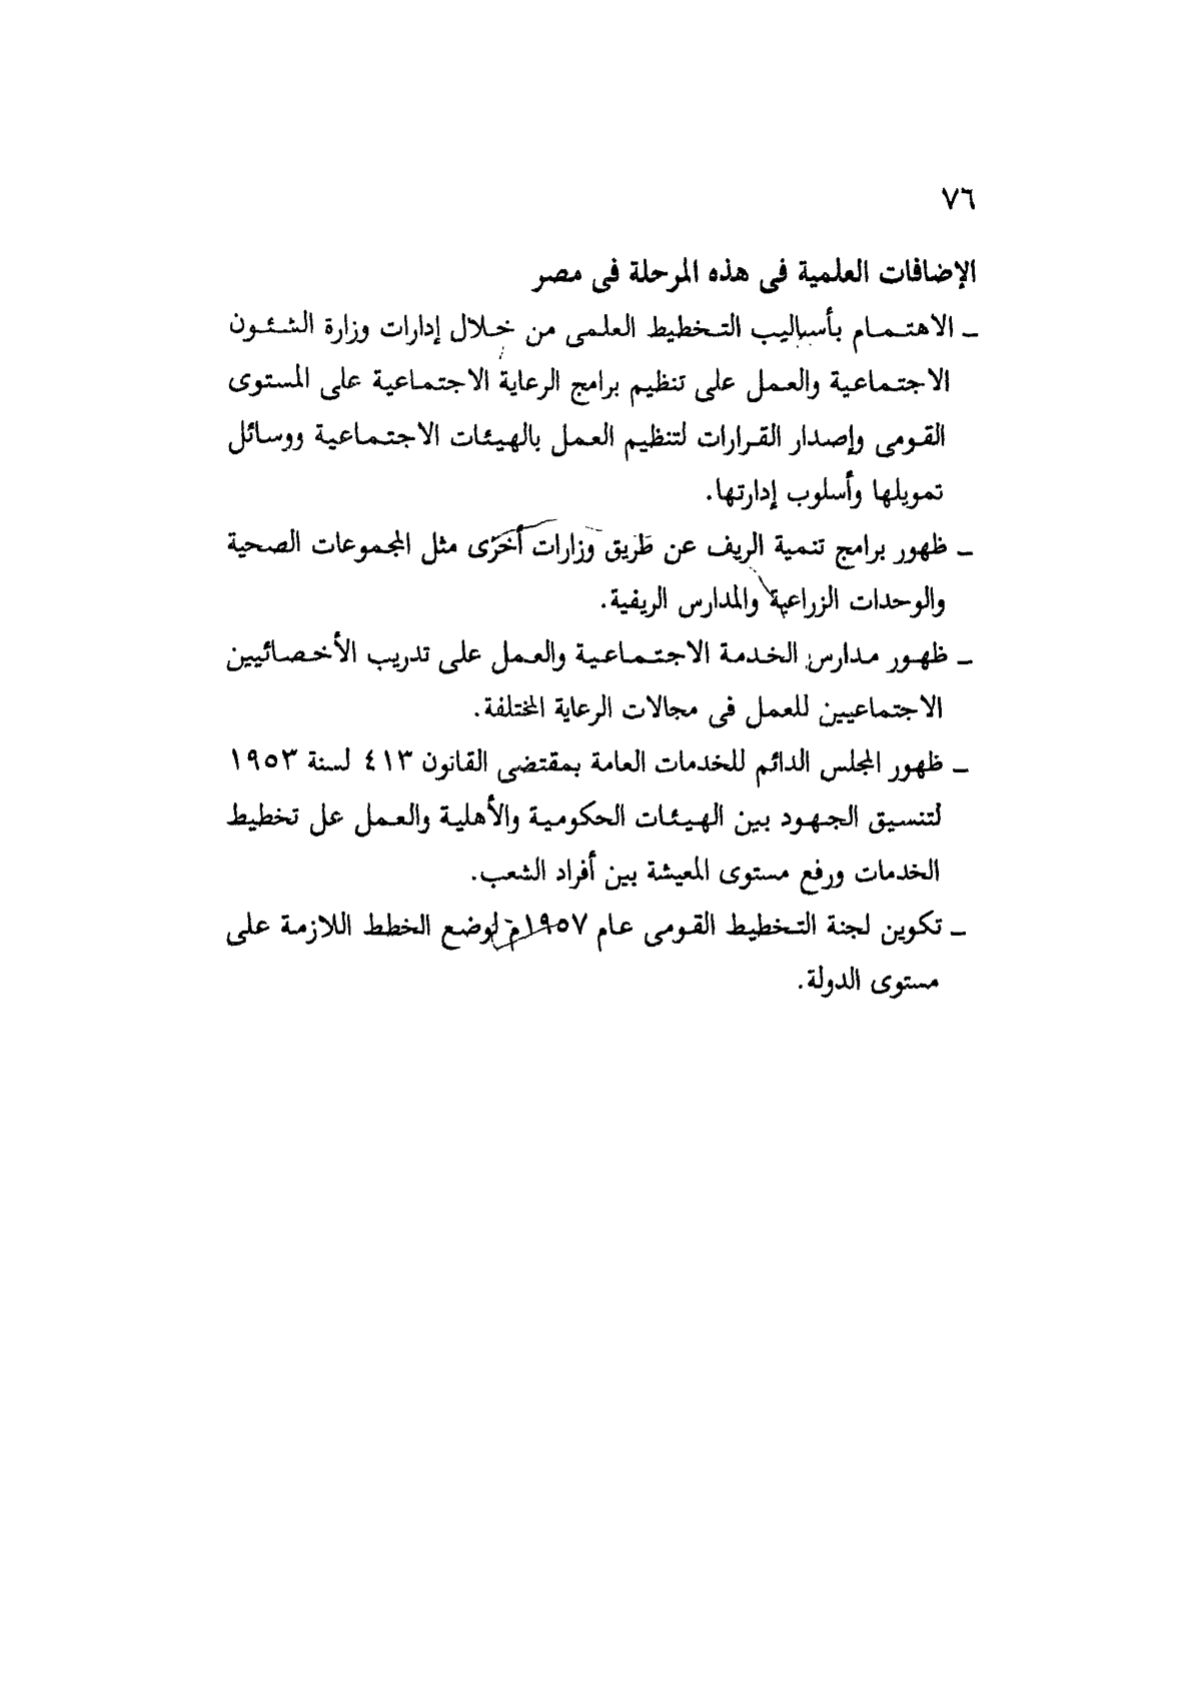 ٧٦
الإضافات العلمية فى هذه المرحلة فى مصر
ـ الاهتمام بأساليب التخطيط العلمى من خلال إدارات وزارة الشئون
الاجتماعية والعمل على تنظيم برامج الرعاية الاجتماعية على المستوى
القومى وإصدار القرارات لتنظيم العمل بالهيئات الاجتماعية ووسائل
تمويلها وأسلوب إدارتها.
ـ ظهور برامج تنمية الريف عن طريق وزارات أخرى مثل المجموعات الصحية
والوحدات الزراعية والمدارس الريفية.
ـ ظهور مدارس الخدمة الاجتماعية والعمل على تدريب الأخصائيين
الاجتماعيين للعمل فى مجالات الرعاية المختلفة.
ـ ظهور المجلس الدائم للخدمات العامة بمقتضى القانون ٤١٣ لسنة ١٩٥٣
لتنسيق الجهود بين الهيئات الحكومية والأهلية والعمل عل تخطيط
الخدمات ورفع مستوى المعيشة بين أفراد الشعب.
ـ تكوين لجنة التخطيط القومى عام ١٩٥٧م لوضع الخطط اللازمة على
مستوى الدولة.